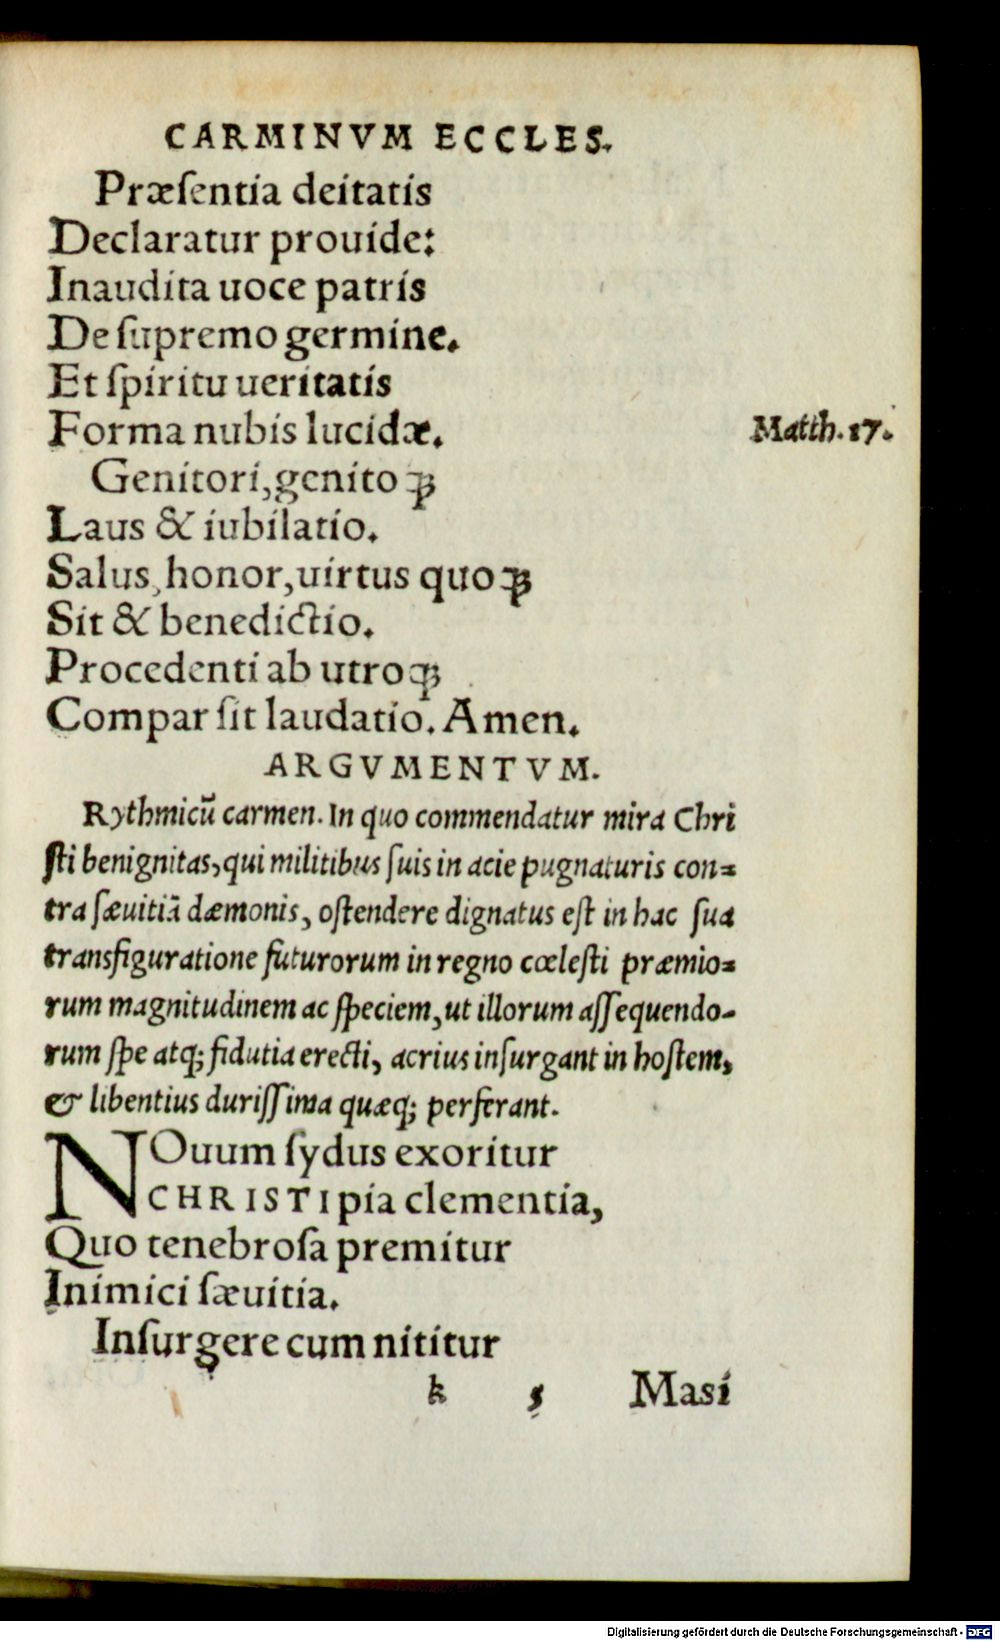 CARMINVM ECCLES.
Præſentia deitatis
Declaratur prouide:
Inaudita uoce patris
De ſupremo germine.
Et ſpiritu ueritatis
Forma nubis lucidæ.
Matth. 17.
Genitori, genitoqꝫ
Laus & iubilatio.
Salus, honor, uirtus quoqꝫ
Sit & benedictio.
Procedenti ab utroqꝫ
Compar ſit laudatio. Amen.
ARGVMENTVM.
Rythmicū carmen. In quo commendatur mira Chri
ſti benignitas, qui militibus ſuis in acie pugnaturis con=
tra ſæuitiā dæmonis, oſtendere dignatus eſt in hac ſua
transfiguratione futurorum in regno cœleſti præmio=
rum magnitudinem ac ſpeciem, ut illorum aſſequendo-
rum ſpe atq; fidutia erecti, acrius inſurgant in hoſtem,
& libentius duriſſima quæq; perferant.
NOuum ſydus exoritur
CHRISTI pia clementia,
Quo tenebroſa premitur
Inimici ſæuitia.
Inſurgere cum nititur
k 5 Masi
Digitalisierung gefördert durch die Deutsche Forschungsgemeinschaft - DFG